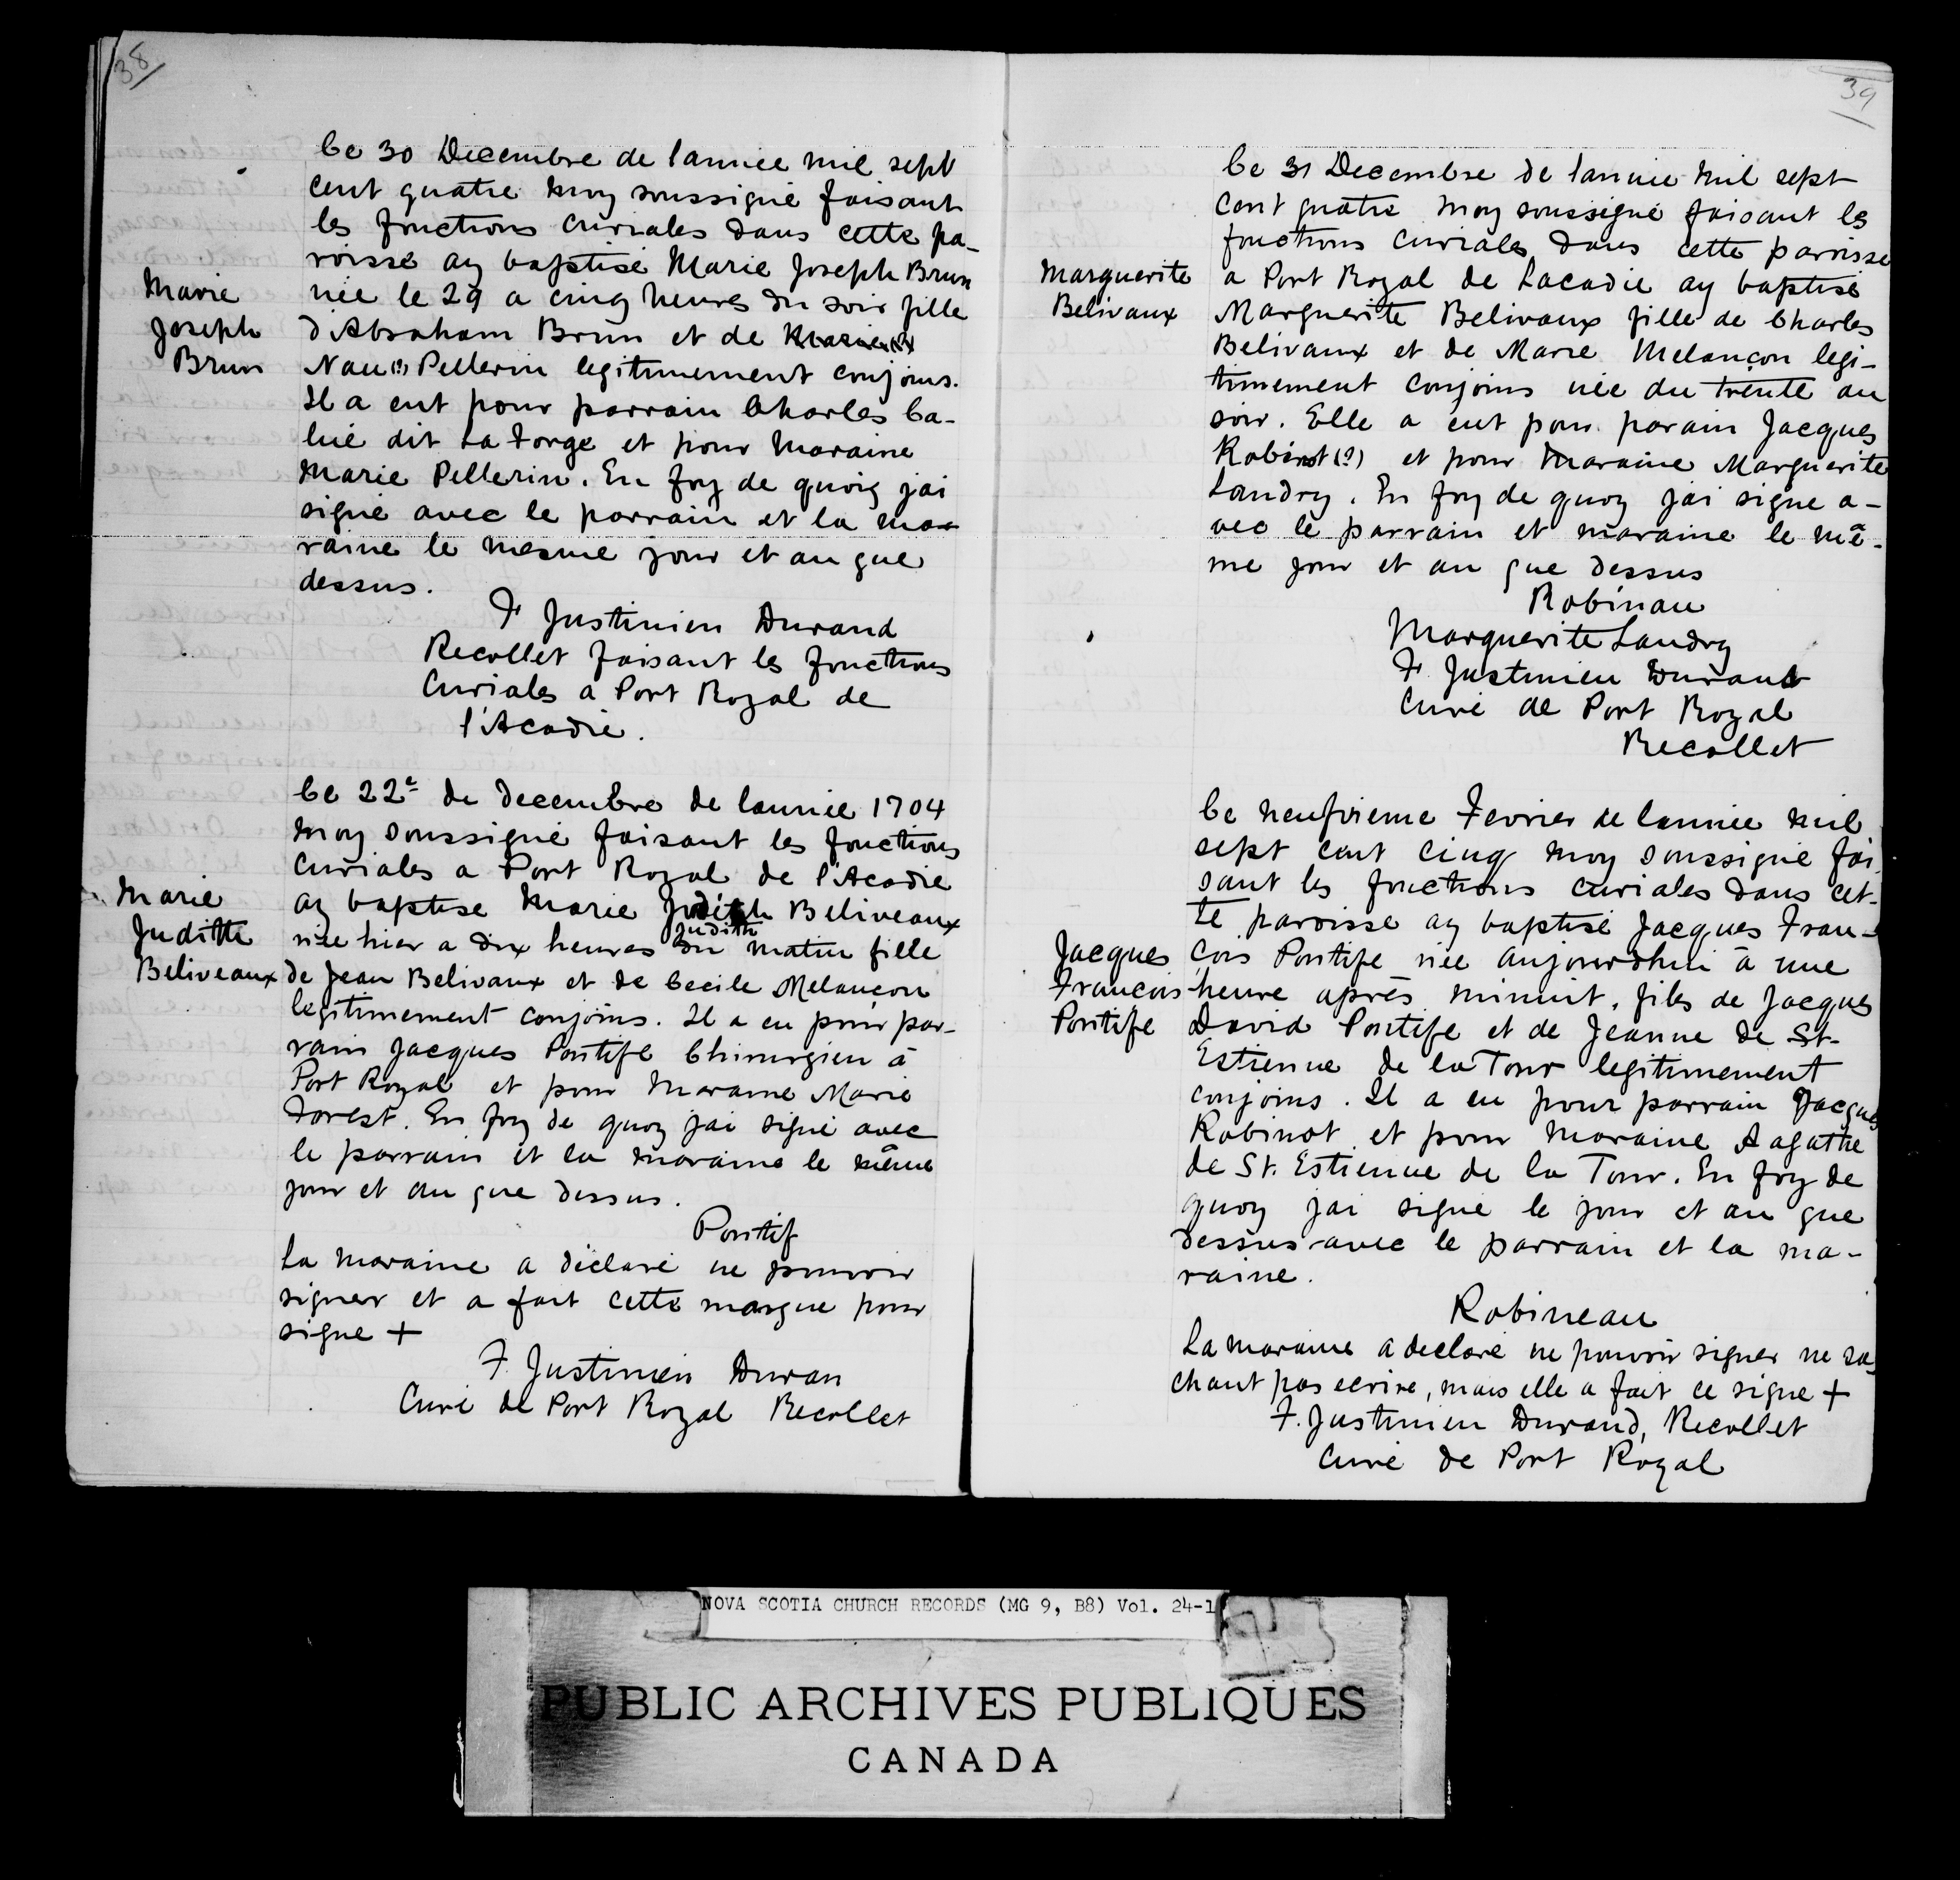 38
Ce 30 Decembre de lannée mil sept
cent quatre moy soussigné faisant
les fonctions curiales dans cette pa-
roisse ay baptisé Marie Joseph Brun
Marie
Joseph
Brun
née le 29 a cinq heures du soir fille
d'Abraham Brun et de Marie (?)
Nau(?) Pellerin legitimement conjoins.
Il a eut pour parrain Charles Ca-
lué dit La Forge et pour Maraine
Marie Pellerin. En foy de quoiy jai
signé avec le parrain et la mar
raine le mesme jour et an que
dessus.
F Justinien Durand
Recollet faisant les fonctions
Curiales a Port Royal de
l'Acadie.
Ce 22e de decembre de lannée 1704
moy soussigné faisant les fonctions
Curiales a Port Royal de l'Acadie
ay baptise Marie Judith Beliveaux
Judith
Marie
Judith
Beliveaux
née hier a dix heures du matin fille
de Jean Belivaux et de Cecile Melançon
legitimement conjoins. Il a eu pour par-
rain Jacques Pontife Chirurgien à
Port Royal et pour Maraine Marie
Forest. En foy de quoy jai signé avec
le parrain et la maraine le même
jour et an que dessus.
Pontif
La maraine a déclaré ne pouvoir
signer et a fait cette marque pour
signe +
F. Justinien Duran
Curé de Port Royal Recollet
39
Ce 31 Decembre de lannée mil sept
cent quatre moy soussigné faisant les
fonctions curiales dans cette paroisse
a Port Royal de Lacadie ay baptisé
Marguerite
Belivaux
Marguerite Belivaux fille de Charles
Belivaux et de Marie Melançon legi-
timement conjoins née du trente au
soir. Elle a eut pour parain Jacques
Robinot (?) et pour Maraine Marguerite
Landry. En foy de quoy jai signe a-
vec le parrain et maraine le mê-
me jour et an que dessus
Robinau
Marguerite Landry
F. Justinien Durand
Curé de Port Royal
Recollet
Ce neufvieme Fevrier de lannée mil
sept cent cinq moy soussigné fai
sant les fonctions curiales dans cet-
te paroisse ay baptisé Jacques Fran-
Jacques
Francois
Pontife
çois Pontife née aujourdhui à une
heure après minuit, fils de Jacques
David Pontife et de Jeanne de St-
Estienne de la Tour legitimement
conjoins. Il a eu pour parrain Jacques
Robinot et pour Maraine Aagathe
de St. Estienne de la Tour. En foy de
quoy jai signé le jour et an que
dessus avec le parrain et la ma-
raine.
Robineau
La maraine a declaré ne pouvoir signer ne sa
chant pas ecrire, mais elle a fait ce signe +
F. Justinien Durand, Recollet
Curé de Port Royal
NOVA SCOTIA CHURCH RECORDS (MG 9, B8) Vol. 24-1
PUBLIC ARCHIVES PUBLIQUES
CANADA